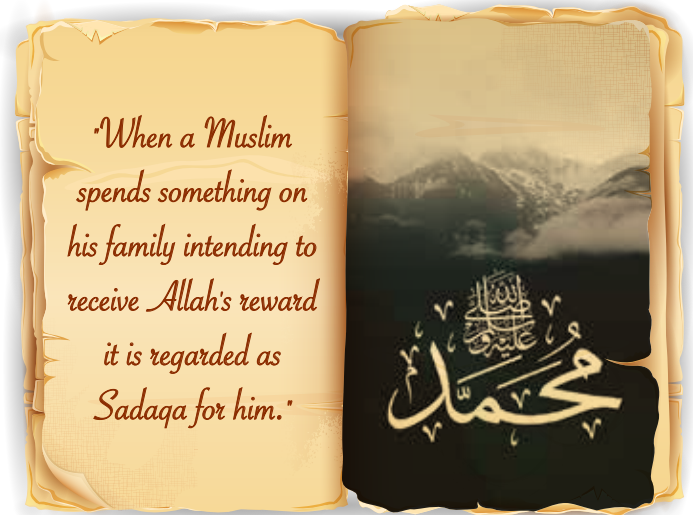 "When a Muslim
spends something on
his family intending to
receive Allah's reward
it is regarded as
Sadaqa for him."
صلى الله عليه وسلم
محمد